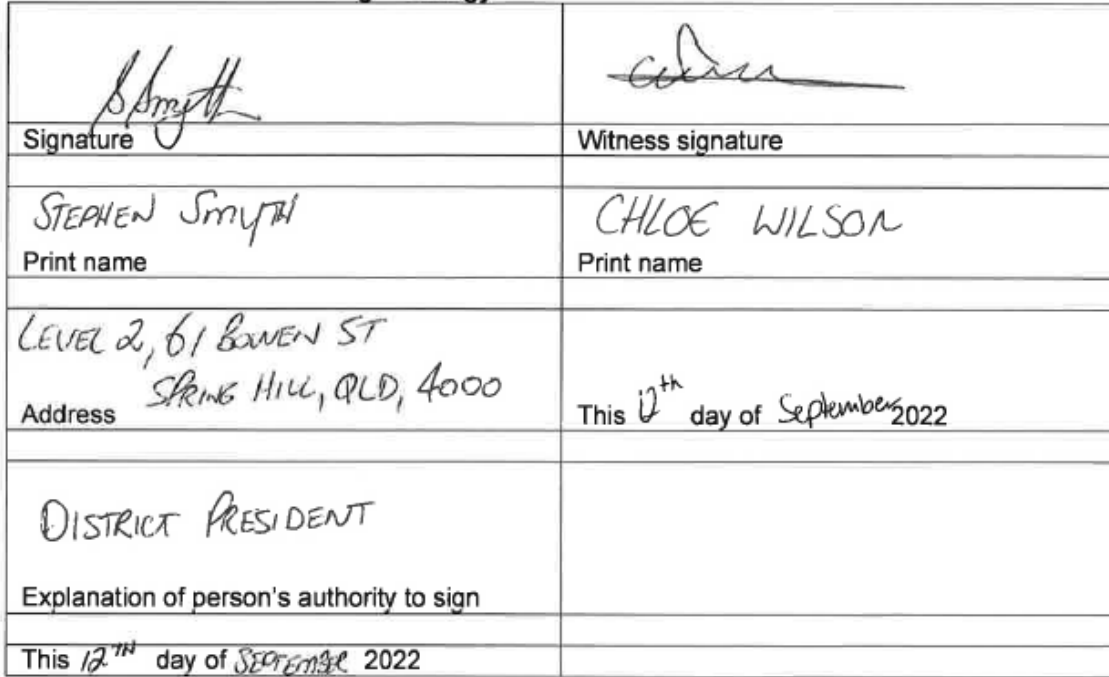 S Smyth
Signature
Witness signature
STEPHEN SMYTH
Print name
CHLOE WILSON
Print name
LEVEL 2, 61 BOWEN ST
SPRING HILL, QLD, 4000
Address
This 12th day of September 2022
DISTRICT PRESIDENT
Explanation of person's authority to sign
This 12TH day of SEPTEMBER 2022